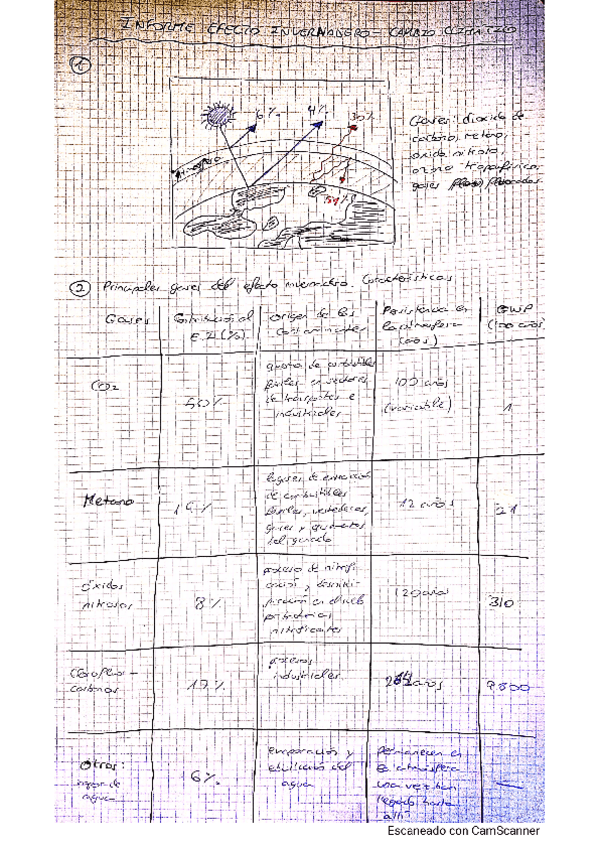 INFORME EFECTO INVERNADERO - CAMBIO CLIMÁTICO
1
6%
4%
30%
51%
Atmósfera
Gases: dióxido de
carbono, metano,
óxido nitroso,
ozono troposférico
gases
2 Principales gases del efecto invernadero. Características
Gases
Contribución al
E.I (%)
Origen de los
contaminantes
Persistencia en
la atmósfera
(años)
GWP
(100 años)
CO2
50%
quema de combustibles
fósiles en sectores
de transportes e
industriales
100 años
(variable)
1
Metano
19%
lugares de extracción
de combustibles
fósiles, vertederos,
12 años
21
óxidos
nitrosos
8%
proceso de nitrifi
cación y desnitri-
ficación en el suelo
nitrificantes
120 años
310
Clorofluoro-
carbonos
17%
procesos
industriales
264 años
Otros:
vapor de
agua
6%
evaporación y
del
agua
permanecen en
la atmósfera
una vez han
llegado hasta
allí
—
Escaneado con CamScanner